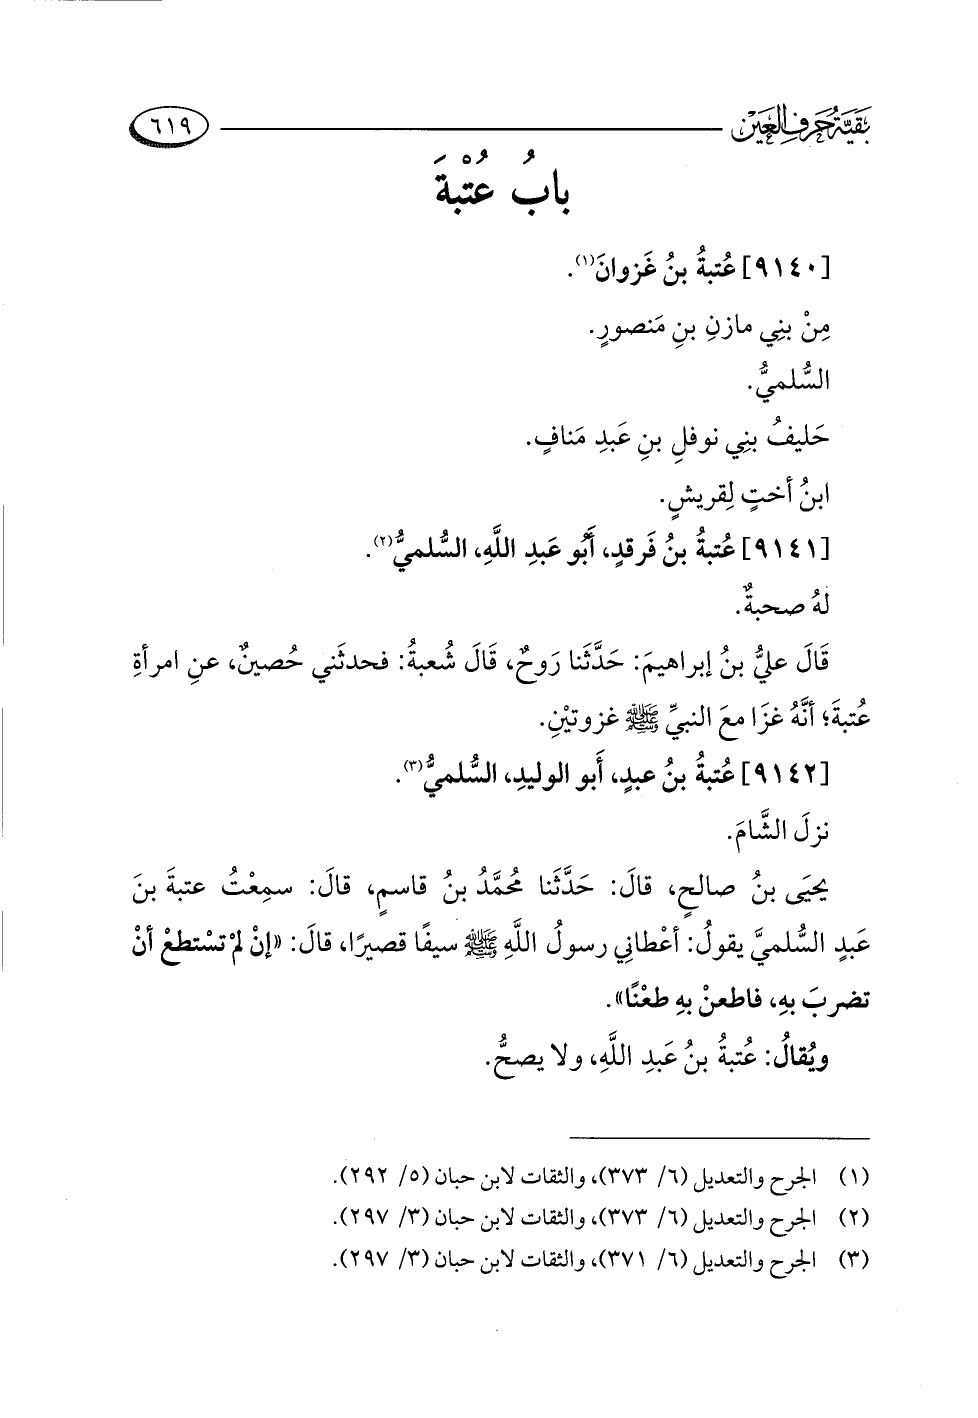 بقية حرف العين ٦١٩
بابُ عُتْبةَ
[٩١٤٠] عُتبةُ بنُ غَزوانَ(١).
مِنْ بنِي مازنِ بنِ مَنصورٍ.
السُّلميُّ.
حَليفُ بنِي نوفلِ بنِ عَبدِ مَنافٍ.
ابنُ أختٍ لِقريشٍ.
[٩١٤١] عُتبةُ بنُ فَرقدٍ، أَبُو عَبدِ اللَّهِ، السُّلميُّ(٢).
لهُ صحبةٌ.
قَالَ عليُّ بنُ إبراهيمَ: حَدَّثَنا رَوحٌ، قَالَ شُعبةُ: فحدثَني حُصينٌ، عنِ امرأةِ
عُتبةَ؛ أنَّهُ غزَا معَ النبيِّ ﷺ غزوتيْنِ.
[٩١٤٢] عُتبةُ بنُ عبدٍ، أَبو الوليدِ، السُّلميُّ(٣).
نزلَ الشَّامَ.
يحيَى بنُ صالحٍ، قالَ: حَدَّثَنا مُحمَّدُ بنُ قاسمٍ، قالَ: سمِعْتُ عتبةَ بنَ
عَبدٍ السُّلميَّ يقولُ: أعْطاني رسولُ اللَّهِ ﷺ سيفًا قصيرًا، قالَ: «إنْ لمْ تسْتطعْ أنْ
تضربَ بهِ، فاطعنْ بهِ طعْنًا».
ويُقالُ: عُتبةُ بنُ عَبدِ اللَّهِ، ولا يصحُّ.
(١) الجرح والتعديل (٦/ ٣٧٣)، والثقات لابن حبان (٥/ ٢٩٢).
(٢) الجرح والتعديل (٦/ ٣٧٣)، والثقات لابن حبان (٣/ ٢٩٧).
(٣) الجرح والتعديل (٦/ ٣٧١)، والثقات لابن حبان (٣/ ٢٩٧).